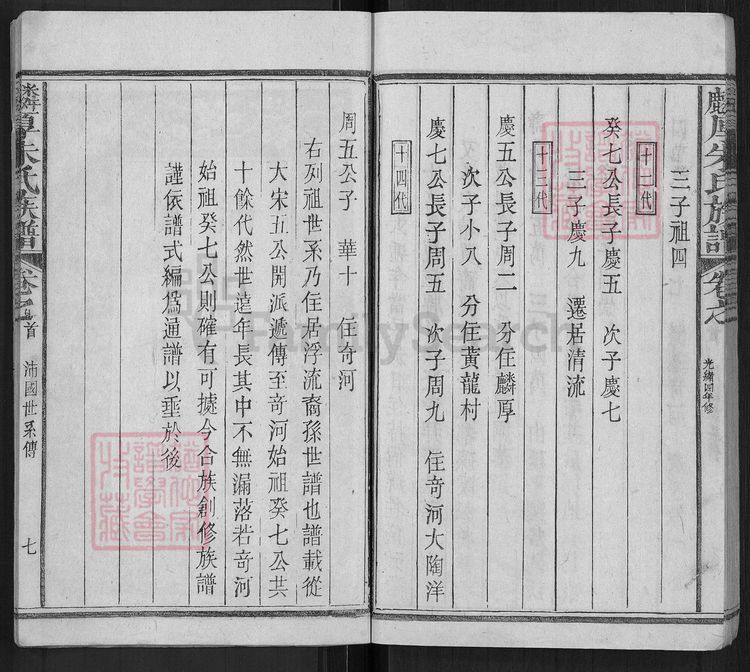 麟厚朱氏族譜 卷之
光緒四年修
三子祖四
十二代
癸七公長子慶五 次子慶七
三子慶九 遷居清流
十三代
慶五公長子周二 分住麟厚
次子小八 分住黃龍村
慶七公長子周五 次子周九 住奇河大陶洋
十四代
周五公子 華十 住奇河
右列祖世系乃住居浮流裔孫世譜也譜載從
大宋五公開派遞傳至奇河始祖癸七公共
十餘代然世遠年長其中不無漏落若奇河
始祖癸七公則確有可據今合族創修族譜
謹依譜式編爲通譜以垂於後
麟厚朱氏族譜 卷之首 沛國世系傳 七
FamilySearch